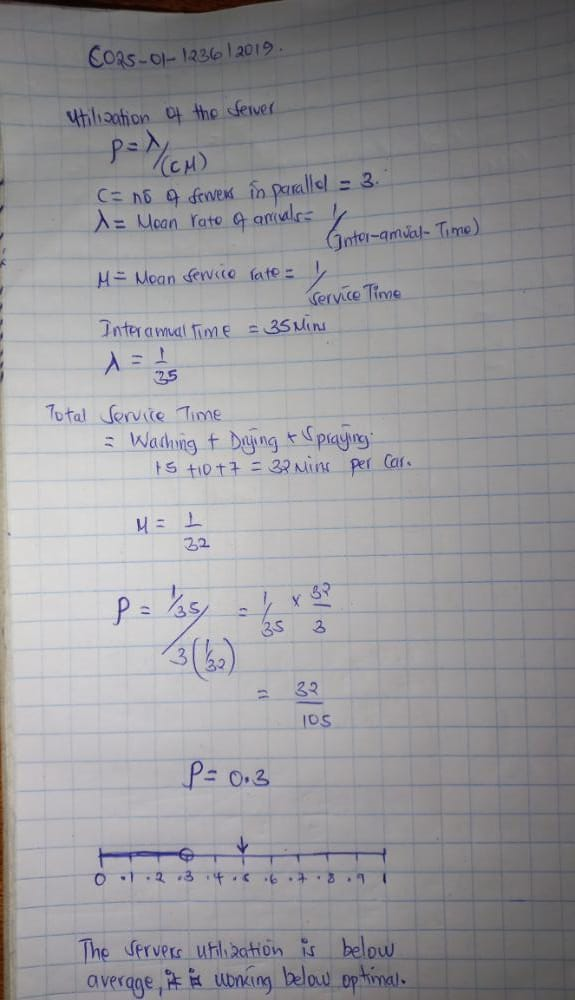 C025-01-1236/2019.
Utilization of the server
ρ = λ/(CM)
C = no of servers in parallel = 3.
λ = Mean rate of arrivals = 1/(Inter-arrival-Time)
M = Mean service rate = 1/Service Time
Interarrival Time = 35 Mins
λ = 1/35
Total Service Time
= Washing + Drying + Spraying.
15 + 10 + 7 = 32 Mins per Car.
M = 1/32
ρ = 1/35 / 3(1/32) = 1/35 × 32/3
= 32/105
ρ = 0.3
0 .1 .2 .3 .4 .5 .6 .7 .8 .9 1
The servers utilization is below
average, it is working below optimal.